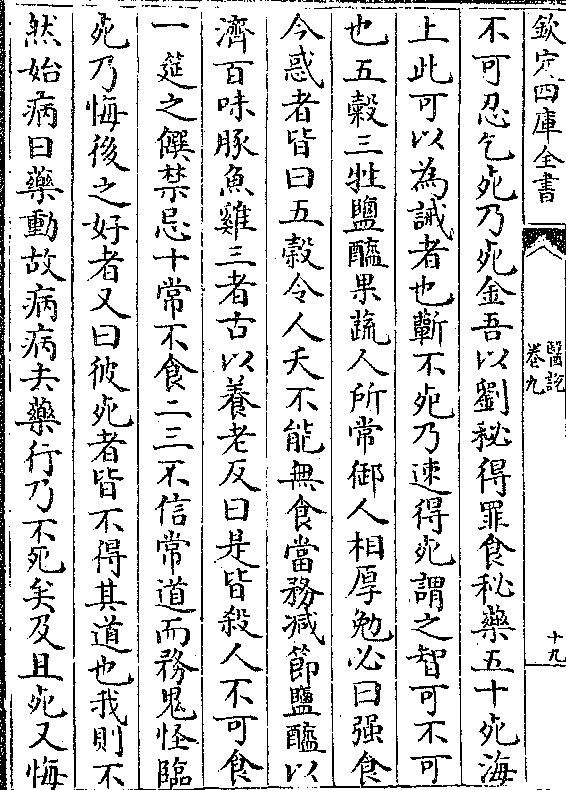 欽定四庫全書
醫說
卷九
十九
不可忍乞死乃死金吾以劉秘得罪食秘藥五十死海
上此可以為誡者也蘄不死乃速得死謂之智可不可
也五穀三牲鹽醯果蔬人所常御人相厚勉必曰强食
今惑者皆曰五穀令人夭不能無食當務减節鹽醯以
濟百味豚魚雞三者古以養老反曰是皆殺人不可食
一筵之饌禁忌十常不食二三不信常道而務鬼怪臨
死乃悔後之好者又曰彼死者皆不得其道也我則不
然始病曰藥動故病病去藥行乃不死矣及且死又悔